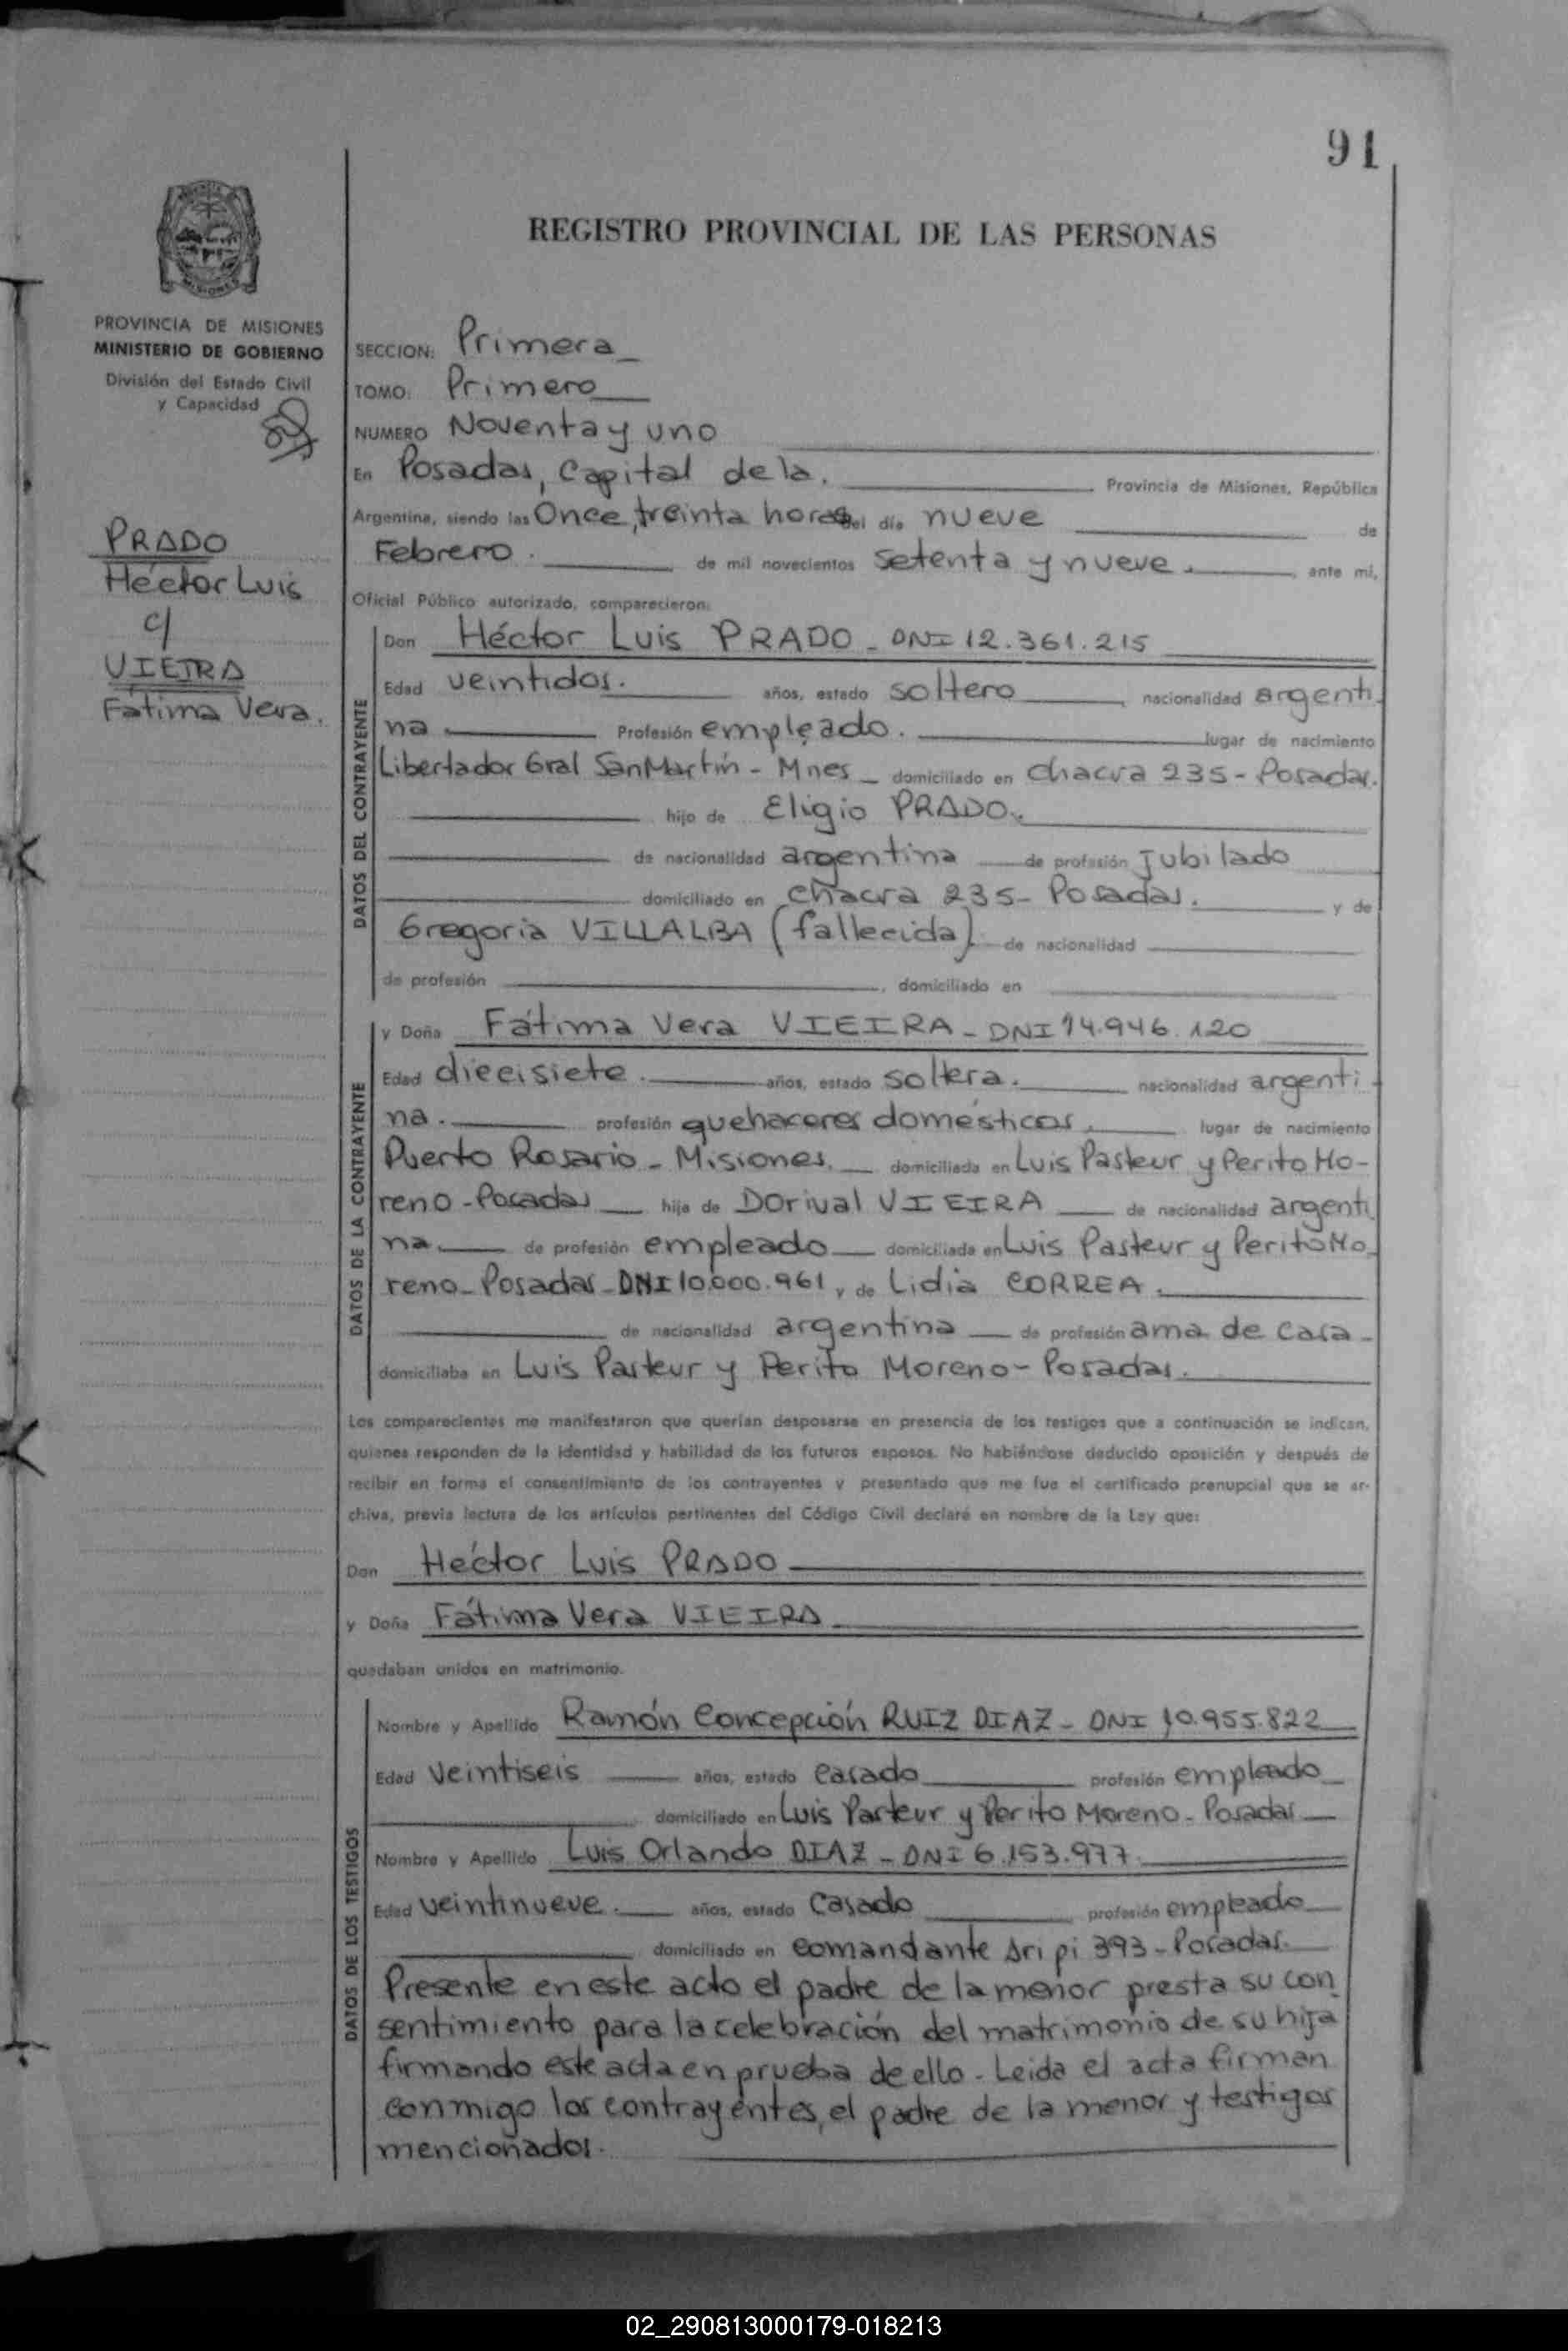 91
REGISTRO PROVINCIAL DE LAS PERSONAS
MISIONES
PROVINCIA DE MISIONES
MINISTERIO DE GOBIERNO
División del Estado Civil
y Capacidad
PRADO
Héctor Luis
c/
VIEIRA
Fátima Vera.
SECCION: Primera
TOMO: Primero
NUMERO Noventa y uno
En Posadas, Capital de la. Provincia de Misiones, República
Argentina, siendo las Once, treinta horas del día nueve de
Febrero. de mil novecientos setenta y nueve. ante mí,
Oficial Público autorizado, comparecieron:
DATOS DEL CONTRAYENTE
Don Héctor Luis PRADO - DNI 12.361.215
Edad veintidos. años, estado soltero, nacionalidad argenti
na. Profesión empleado. lugar de nacimiento
Libertador Gral San Martín - Mnes - domiciliado en Chacra 235 - Posadas.
hijo de Eligio PRADO.
de nacionalidad argentina de profesión jubilado
domiciliado en chacra 235 - Posadas. y de
Gregoria VILLALBA (fallecida). de nacionalidad
de profesión , domiciliado en
DATOS DE LA CONTRAYENTE
y Doña Fátima Vera VIEIRA - DNI 14.946.120
Edad diecisiete. años, estado soltera. nacionalidad argenti-
na. profesión quehaceres domésticos. lugar de nacimiento
Puerto Rosario - Misiones. domiciliada en Luis Pasteur y Perito Mo-
reno - Posadas hija de Dorival VIEIRA de nacionalidad argenti
na. de profesión empleado domiciliada en Luis Pasteur y Perito Mo-
reno - Posadas - DNI 10.000.961, y de Lidia CORREA.
de nacionalidad argentina de profesión ama de casa -
domiciliaba en Luis Pasteur y Perito Moreno - Posadas.
Los comparecientes me manifestaron que querían desposarse en presencia de los testigos que a continuación se indican,
quienes responden de la identidad y habilidad de los futuros esposos. No habiéndose deducido oposición y después de
recibir en forma el consentimiento de los contrayentes y presentado que me fue el certificado prenupcial que se ar-
chiva, previa lectura de los artículos pertinentes del Código Civil declaré en nombre de la Ley que:
Don Héctor Luis PRADO
y Doña Fátima Vera VIEIRA
quedaban unidos en matrimonio.
DATOS DE LOS TESTIGOS
Nombre y Apellido Ramón Concepción RUIZ DIAZ - DNI 10.955.822
Edad veintiseis años, estado casado profesión empleado
domiciliado en Luis Pasteur y Perito Moreno - Posadas
Nombre y Apellido Luis Orlando DIAZ - DNI 6.153.977
Edad veintinueve. años, estado casado profesión empleado
domiciliado en comandante Aripi 393 - Posadas.
Presente en este acto el padre de la menor presta su con
sentimiento para la celebración del matrimonio de su hija
firmando este acta en prueba de ello - Leida el acta firman
conmigo los contrayentes, el padre de la menor y testigos
mencionados.
02_290813000179-018213